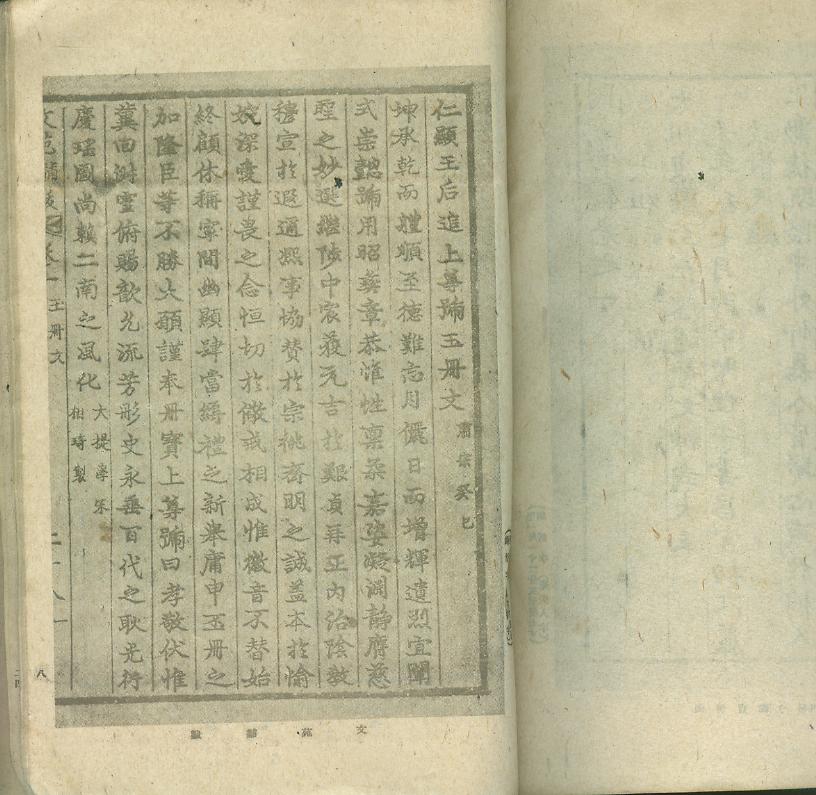 仁顯王后進上尊號玉冊文 肅宗癸巳
坤承乾而體順至德難忘月儷日而增輝遺烈宜闡
式崇懿號用昭彝章恭惟性稟柔嘉姿凝淵靜膺慈
聖之妙選繼陟中宸蔑元吉於艱貞再正內治陰敎
穆宣於遐邇熙事協贊於宗祧齋明之誠蓋本於愉
婉深愛謹畏之念恒切於儆戒相成惟徽音不替始
終顧休稱寧間幽顯肆當縟禮之新擧庸申玉冊之
加隆臣等不勝大願謹奉冊寶上尊號曰孝敬伏惟
冀回澍靈俯賜歆允流芳彤史永垂百代之耿光衍
慶瑤圖尙賴二南之風化 大提學
相琦製
文苑黼黻 卷一 玉冊文 二十八
文苑黼黻
八